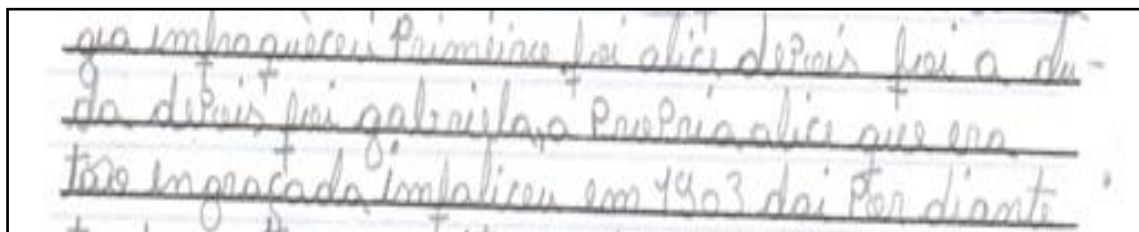 gia imfraquèceu Primeiro foi alice depois foi a du-
da depois foi gabriela, a Propria alice que era
tão ingraçada imfaliceu em 1903 dai Por diante